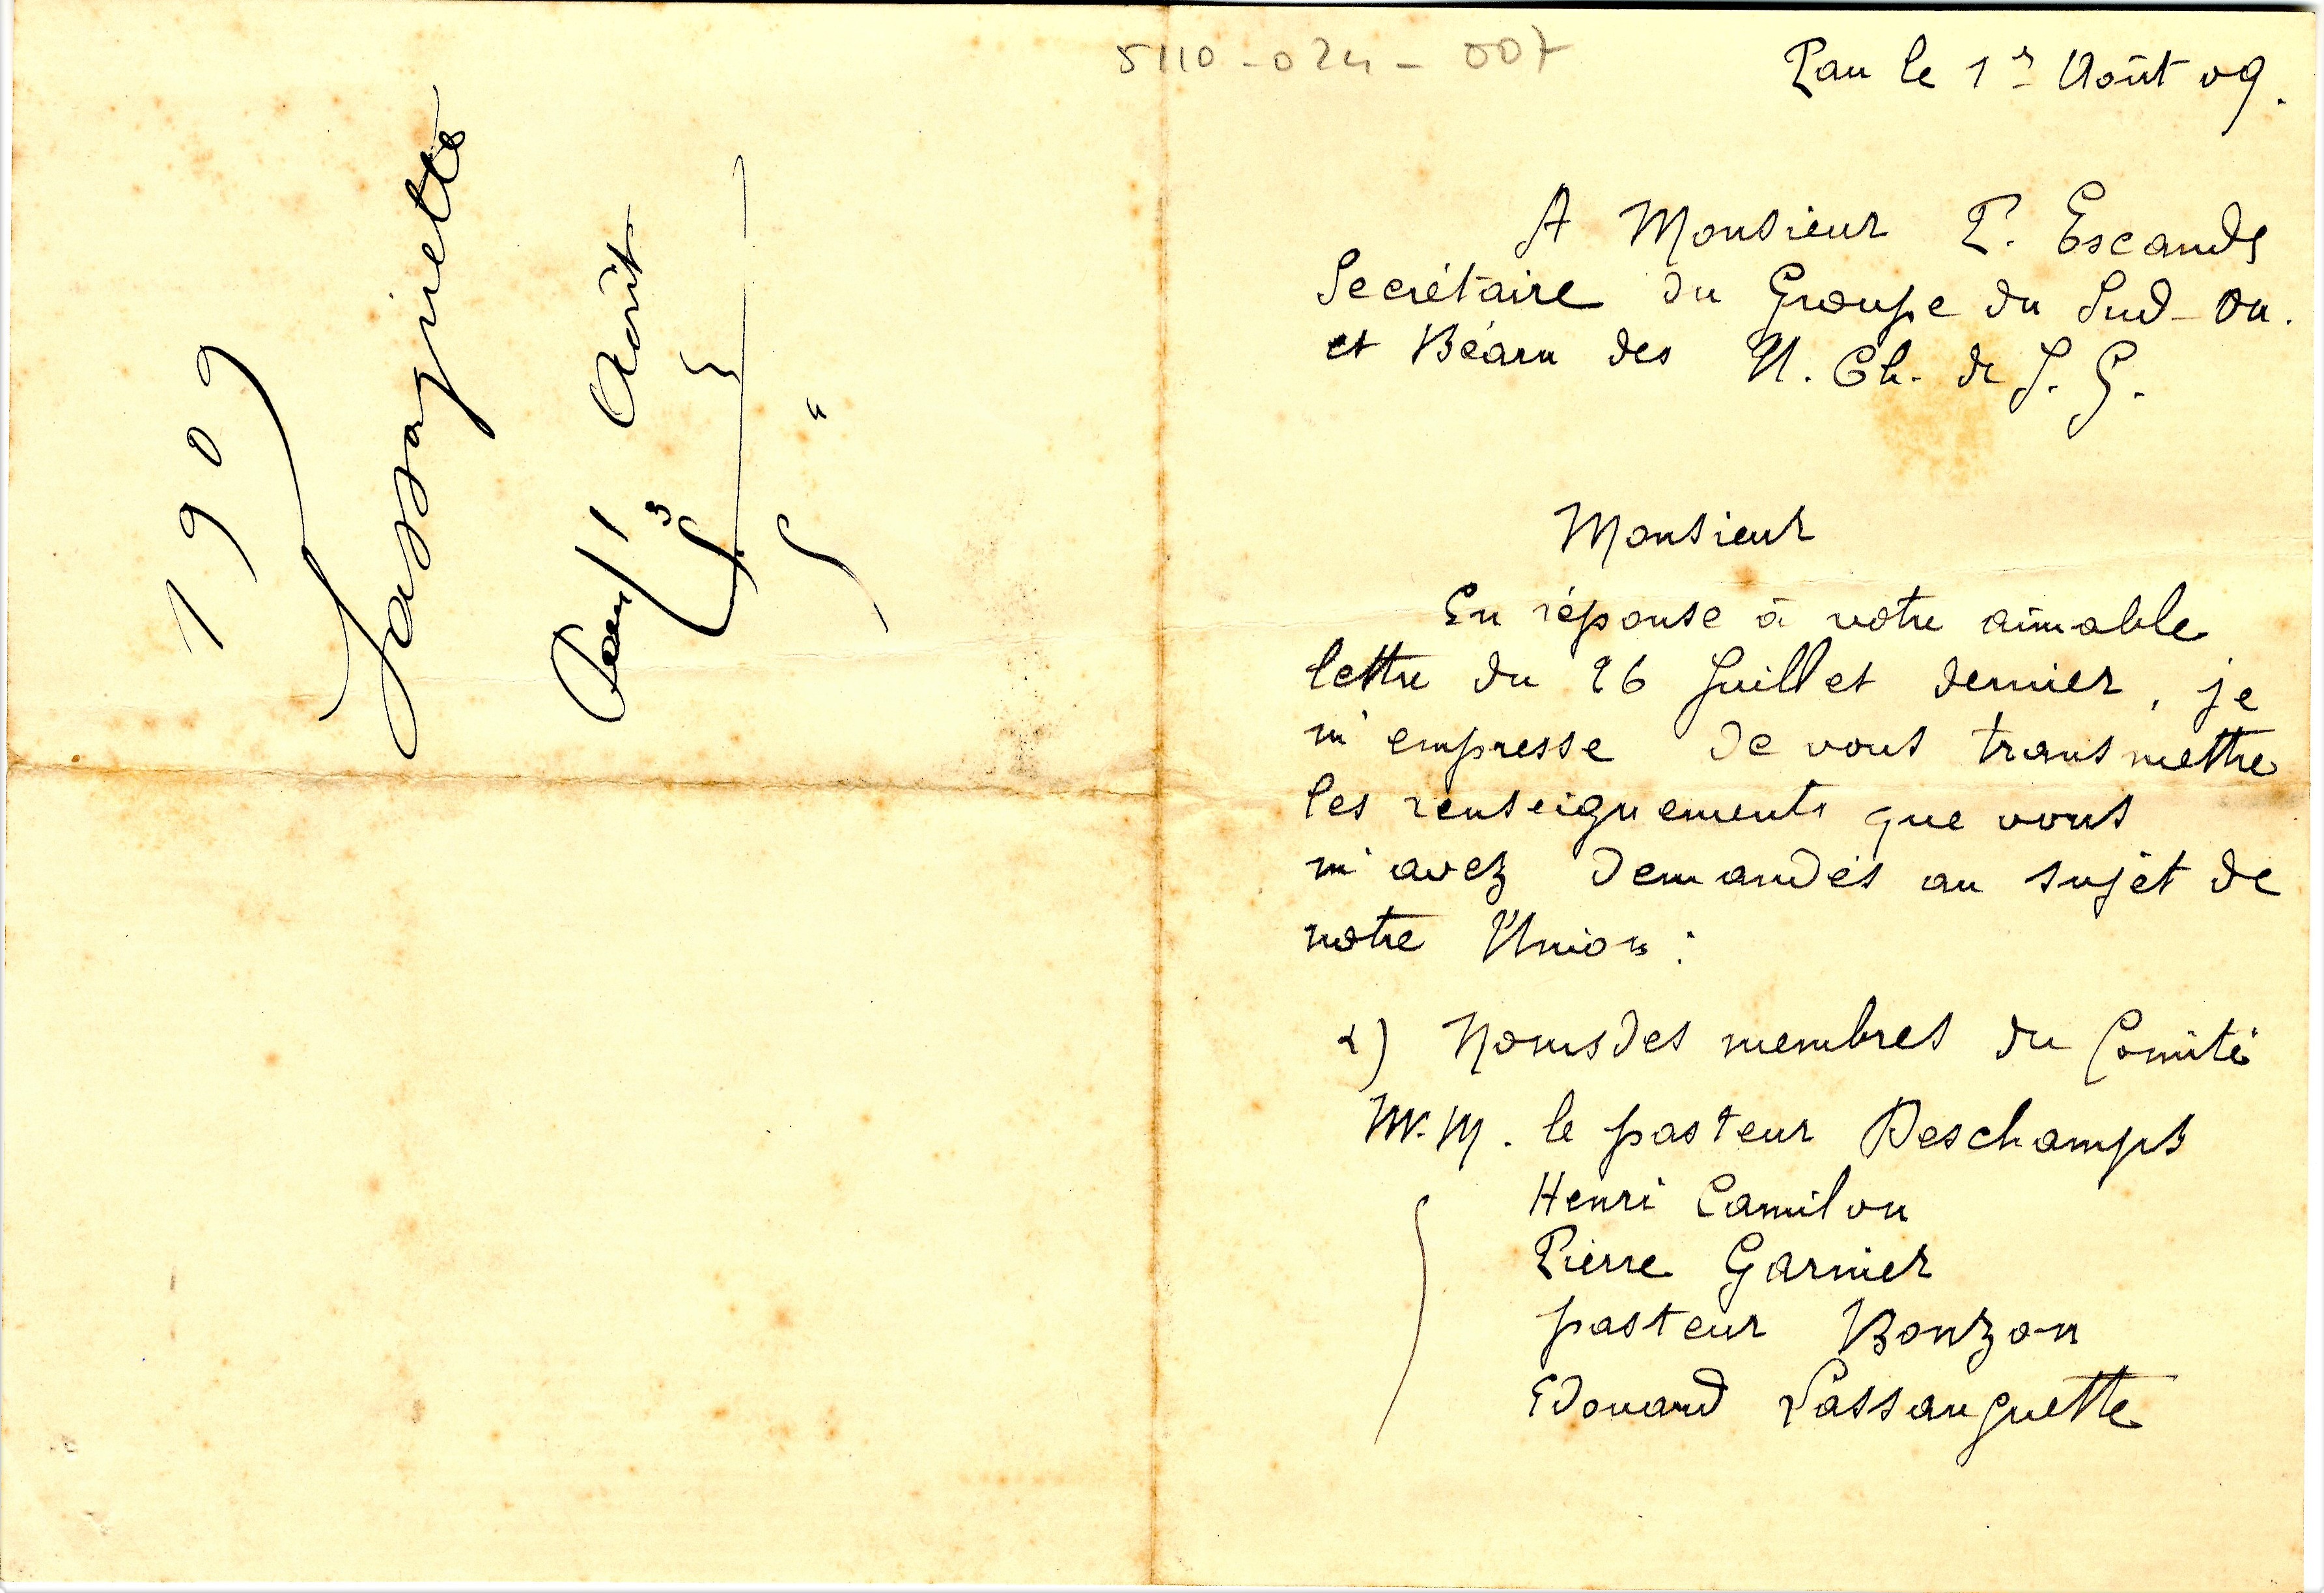 5110-024-007
1909
Lassaguette
Pau 1 Août
3
5 "
Pau le 1er Août 09.
A Monsieur P. Escande
Secrétaire du Groupe du Sud-Ou.
et Béarn des U. Ch. de J. G.
Monsieur
En réponse à votre aimable
lettre du 26 Juillet dernier, je
m'empresse de vous transmettre
les renseignements que vous
m'avez demandés au sujet de
notre Union :
1) Noms des membres du Comité
M.M. le pasteur Deschamps
Henri Camilou
Pierre Garnier
pasteur Bonzon
Edouard Lassauguette